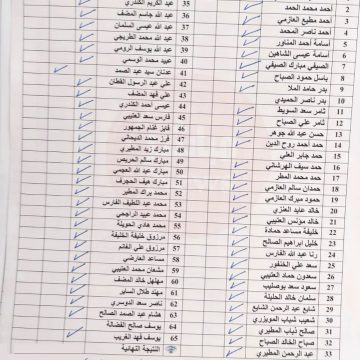 2 أحمد محمد الحمد
3 أحمد مطيع العازمي
4 أحمد ناصر المحمد
5 أسامة أحمد المناور
6 أسامة عيسى الشاهين
7 الصيفي مبارك الصيفي
8 باسل حمود الصباح
9 بدر حامد الملا
10 بدر ناصر الحميدي
11 ثامر سعد السويط
12 ثامر علي الصباح
13 حسن عبد الله جوهر
14 حمد أحمد روح الدين
15 حمد جابر العلي
16 حمد سيف الهرشاني
17 حمد محمد المطر
18 حمدان سالم العازمي
19 حمود مبارك العازمي
20 خالد عايد العنزي
21 خالد مؤنس العتيبي
22 خليفة مساعد حمادة
23 خليل ابراهيم الصالح
24 رنا عبد الله الفارس
25 سعد علي الخنفور
26 سعدون حماد العتيبي
27 سعود سعد بوصليب
28 سلمان خالد الحليلة
29 شايع عبد الرحمن الشايع
30 شعيب شباب المويزري
31 صالح ذياب المطيري
32 صباح الخالد الصباح
33 عبد الرحمن المطيري
35 عبد الكريم الكندري
36 عبد الله جاسم المضف
37 عبد الله عيسى السلمان
38 عبد الله محمد الطريجي
39 عبد الله يوسف الرومي
40 عبيد محمد الوسمي
41 عدنان سيد عبد الصمد
42 علي عبد الرسول القطان
43 علي فهد المضف
44 عيسى أحمد الكندري
45 فارس سعد العتيبي
46 فايز غنام الجمهور
47 فرز محمد الديحاني
48 مبارك زيد المطيري
49 مبارك سالم الحريص
50 مبارك عبد الله العجمي
51 مبارك هيف الحجرف
52 محمد براك المطير
53 محمد عبد اللطيف الفارس
54 محمد عبيد الراجحي
55 محمد هادي الحويلة
56 مرزوق خليفة الخليفة
57 مرزوق علي الغانم
58 مساعد العارضي
59 مشعان محمد العتيبي
60 مهلهل خالد المضف
61 مهند طلال الساير
62 ناصر سعد الدوسري
63 هشام عبد الصمد الصالح
64 يوسف صالح الفضالة
65 يوسف فهد الغريب
النتيجة النهائية